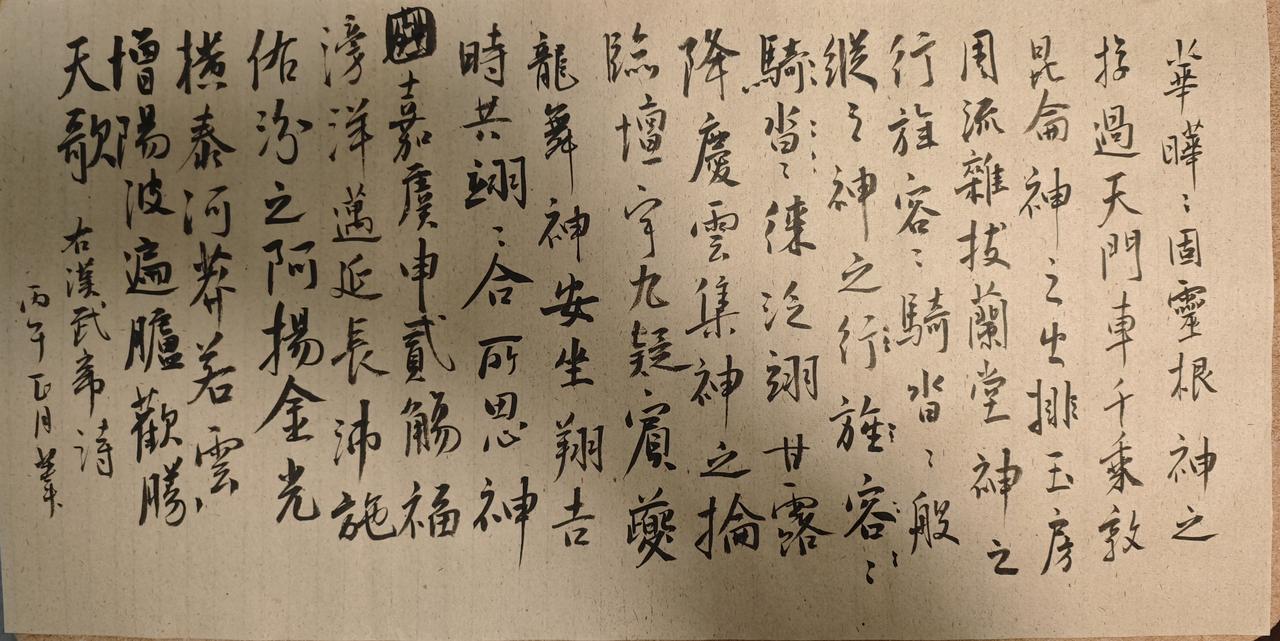 華曄〻固靈根神之
斿過天門車千乘敦
昆侖神之出排玉房
周流雜拔蘭堂神之
行旌容〻騎沓〻般
縱〻神之行旌容〻
騎沓〻徠泛翊甘露
降慶雲集神之揄
臨壇宇九疑賓夔
龍舞神安坐翔吉
時共翊〻合所思神
嘉虞申貳觴福
滂洋邁延長沛施
佑汾之阿揚金光
橫泰河莽若雲
增陽波遍臚歡騰
天歌
右漢武帝詩
丙午正月